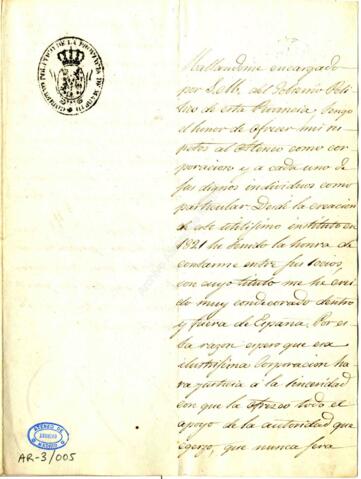 GOBIERNO POLITICO DE LA PROVINCIA DE MADRID
Hallandome encargado
por S.M. del Gobierno Poli-
tico de esta Provincia, tengo
el honor de ofrecer mis res-
petos al Ateneo como cor-
poracion y a cada uno de
sus dignos individuos como
particular. Desde la creacion
de este utilisimo instituto en
1821 he tenido la honra de
contarme entre sus socios,
con cuyo titulo me he crei-
do muy condecorado dentro
y fuera de España. Por es-
ta razon espero que esa
ilustrisima Corporacion ha-
ra justicia á la sinceridad
con que la ofrezco todo el
apoyo de la autoridad que
egerzo, que nunca sera
ATENEO DE
MADRID
AR-3/005